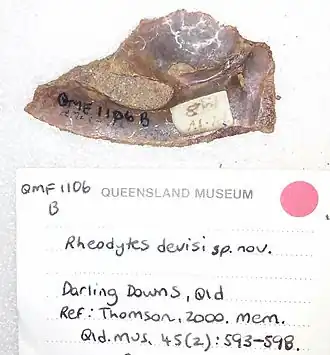 QMF 1106 B
QMF 1106
B
QUEENSLAND MUSEUM
Rheodytes devisi sp. nov.
Darling Downs, Qld
Ref: Thomson, 2000. mem.
Qld. mus. 45(2): 593-598.